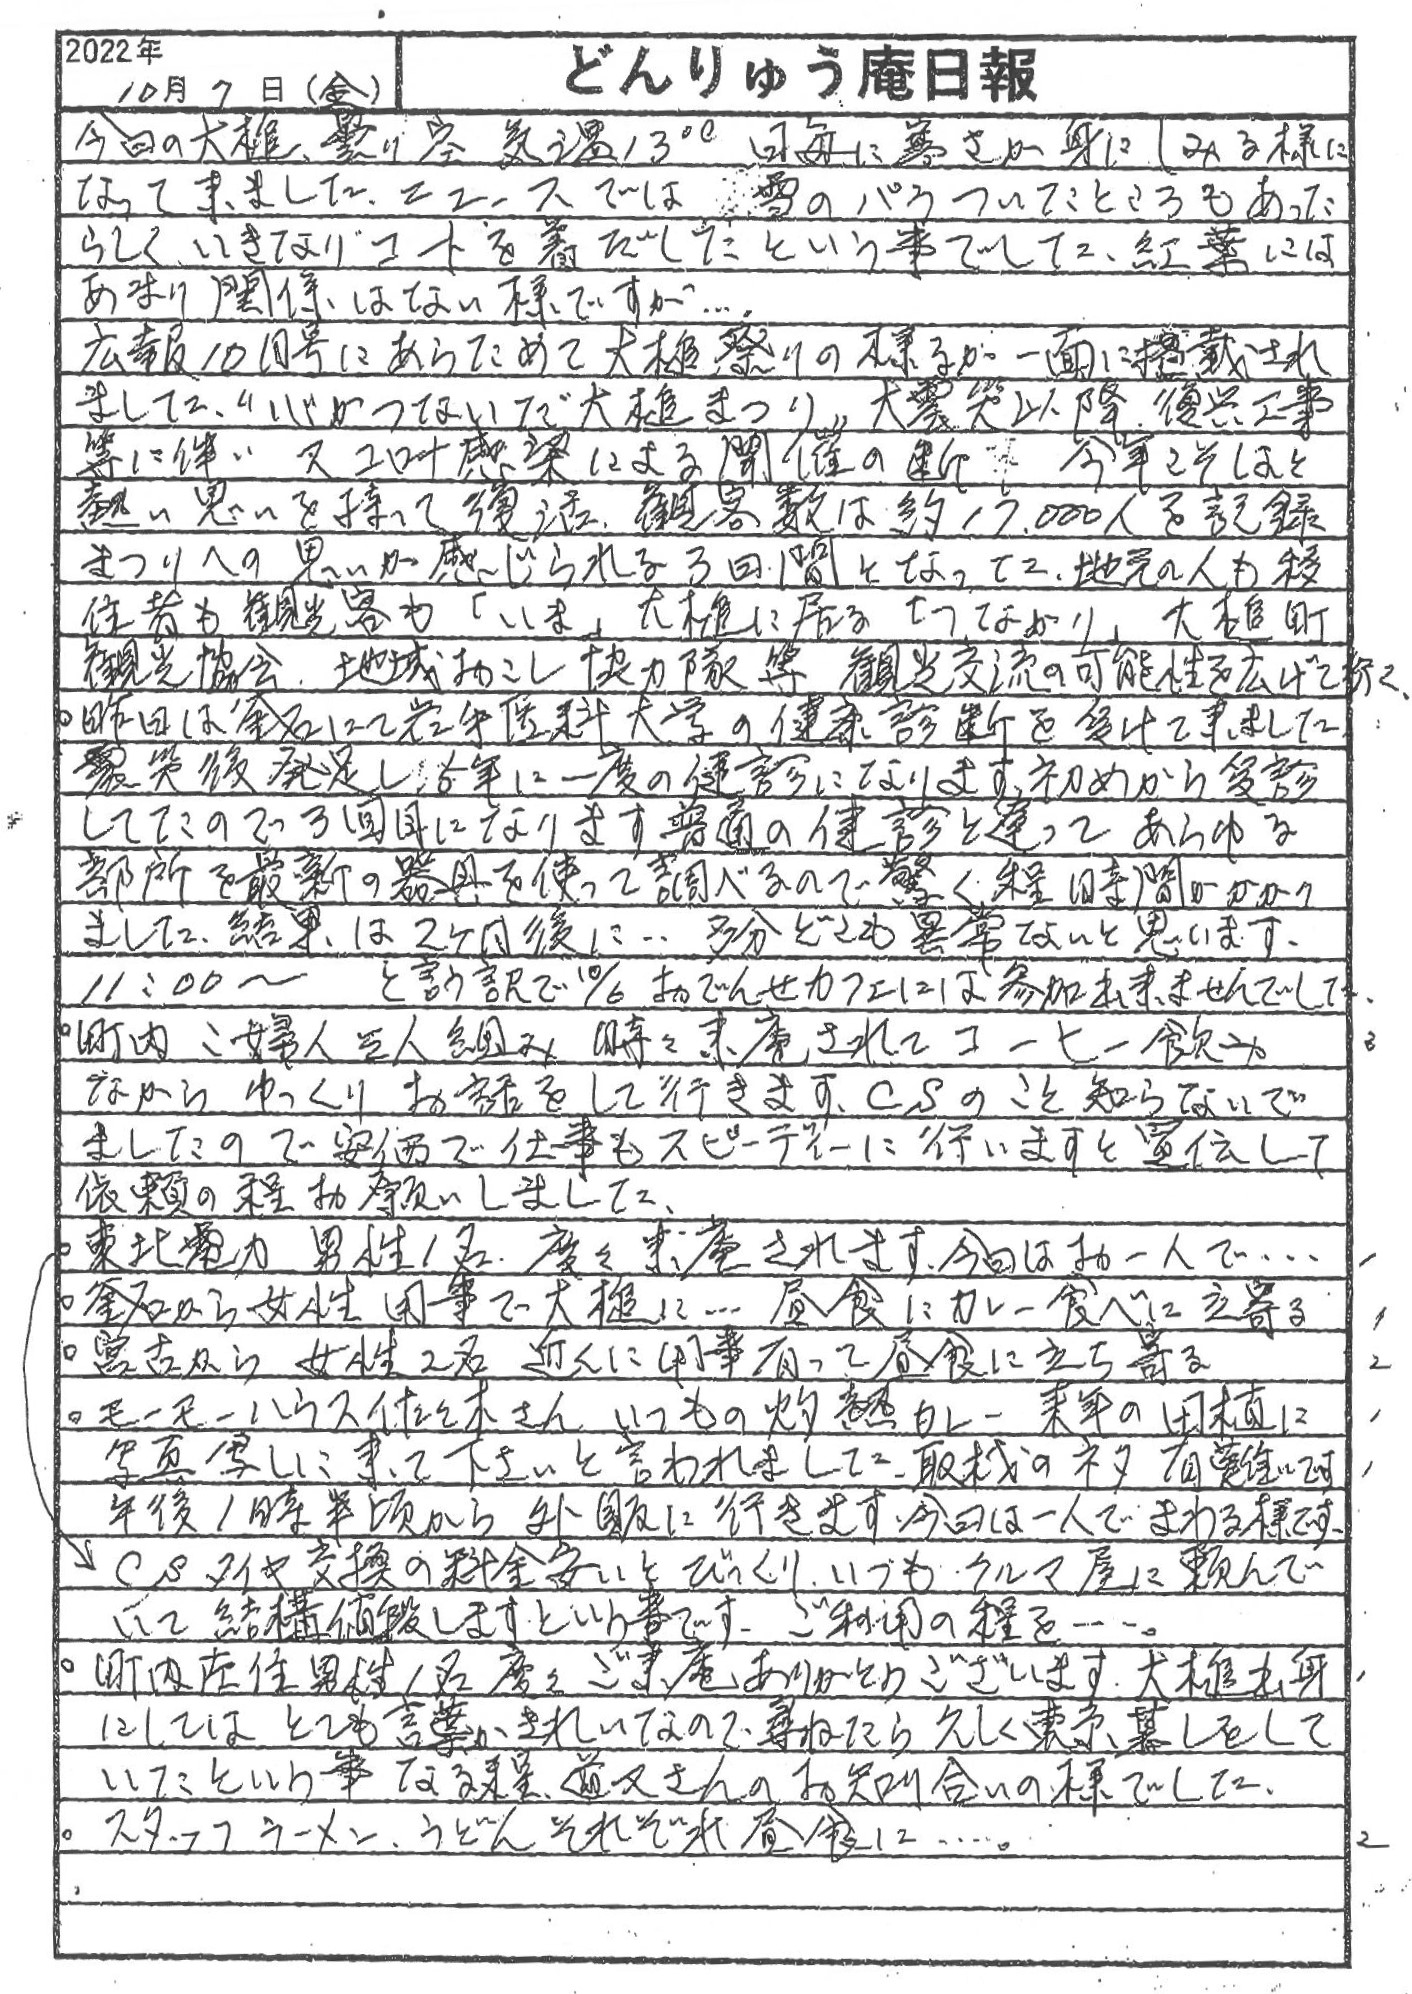 2022年
10月7日(金)
どんりゅう庵日報
今日の大槌、曇り空 気温13℃ 日毎に寒さが身にしみる様に
なって来ました、ニュースでは 雪のパラついたところもあった
らしく、いきなりコートを着だしたという事でした、紅葉には
あまり関係はない様ですが…。
広報10月号にあらためて大槌祭りの様子が一面に掲載され
ました、"心がつないだ大槌まつり"大震災以降、復興工事
等に伴い 又コロナ感染による開催の断 今年こそはと
熱い思いを持って復活、観客数は約17,000人を記録
まつりへの思いが感じられる3日間となった、地元の人も移
住者も観光客も「いま」大槌に居る「つながり」大槌町
観光協会、地域おこし協力隊等 観光交流の可能性を広げて行く、
○昨日は釜石にて岩手医科大学の健康診断を受けて来ました
震災後発足し5年に一度の健診になります、初めから受診
してたので3回目になります普通の健診と違って あらゆる
部所を最新の器具を使って調べるので驚く程時間がかかり
ました、結果は2ヶ月後に… 多分どこも異常ないと思います、
11:00〜 と言う訳で10/6 おでんせカフェには参加出来ませんでした、
○町内 ご婦人三人組み 時々来庵されてコーヒー飲み 3
ながら ゆっくり お話をして行きます、CSのこと知らないで
ましたので安価で仕事もスピーディーに行いますと宣伝して
依頼の程お願いしました、
○東北電力 男性1名 度々来庵されます、今日はお一人で‥‥ 1
○釜石から女性 用事で大槌に… 昼食にカレー食べに立寄る 1
○宮古から 女性2名 近くに用事有って昼食に立ち寄る 2
○モーモーハウス佐々木さん いつもの灼熱カレー 来年の田植に 1
写真写しに来て下さいと言われました、取材のネタ有難いです 1
午後1時半頃から外販に行きます、今日は一人でまわる様です、
CSタイヤ交換の料金安いとびっくり、いつもクルマ屋に頼んで
いて結構値段しますという事です、ご利用の程を‥‥。
○町内在住男性1名 度々ご来庵ありがとうございます、大槌出身 1
にしては とても言葉がきれいなので尋ねたら久しく東京暮しをして
いたという事 なる程、道又さんのお知り合いの様でした、
○スタッフ ラーメン、うどん それぞれ昼食に‥‥。 2